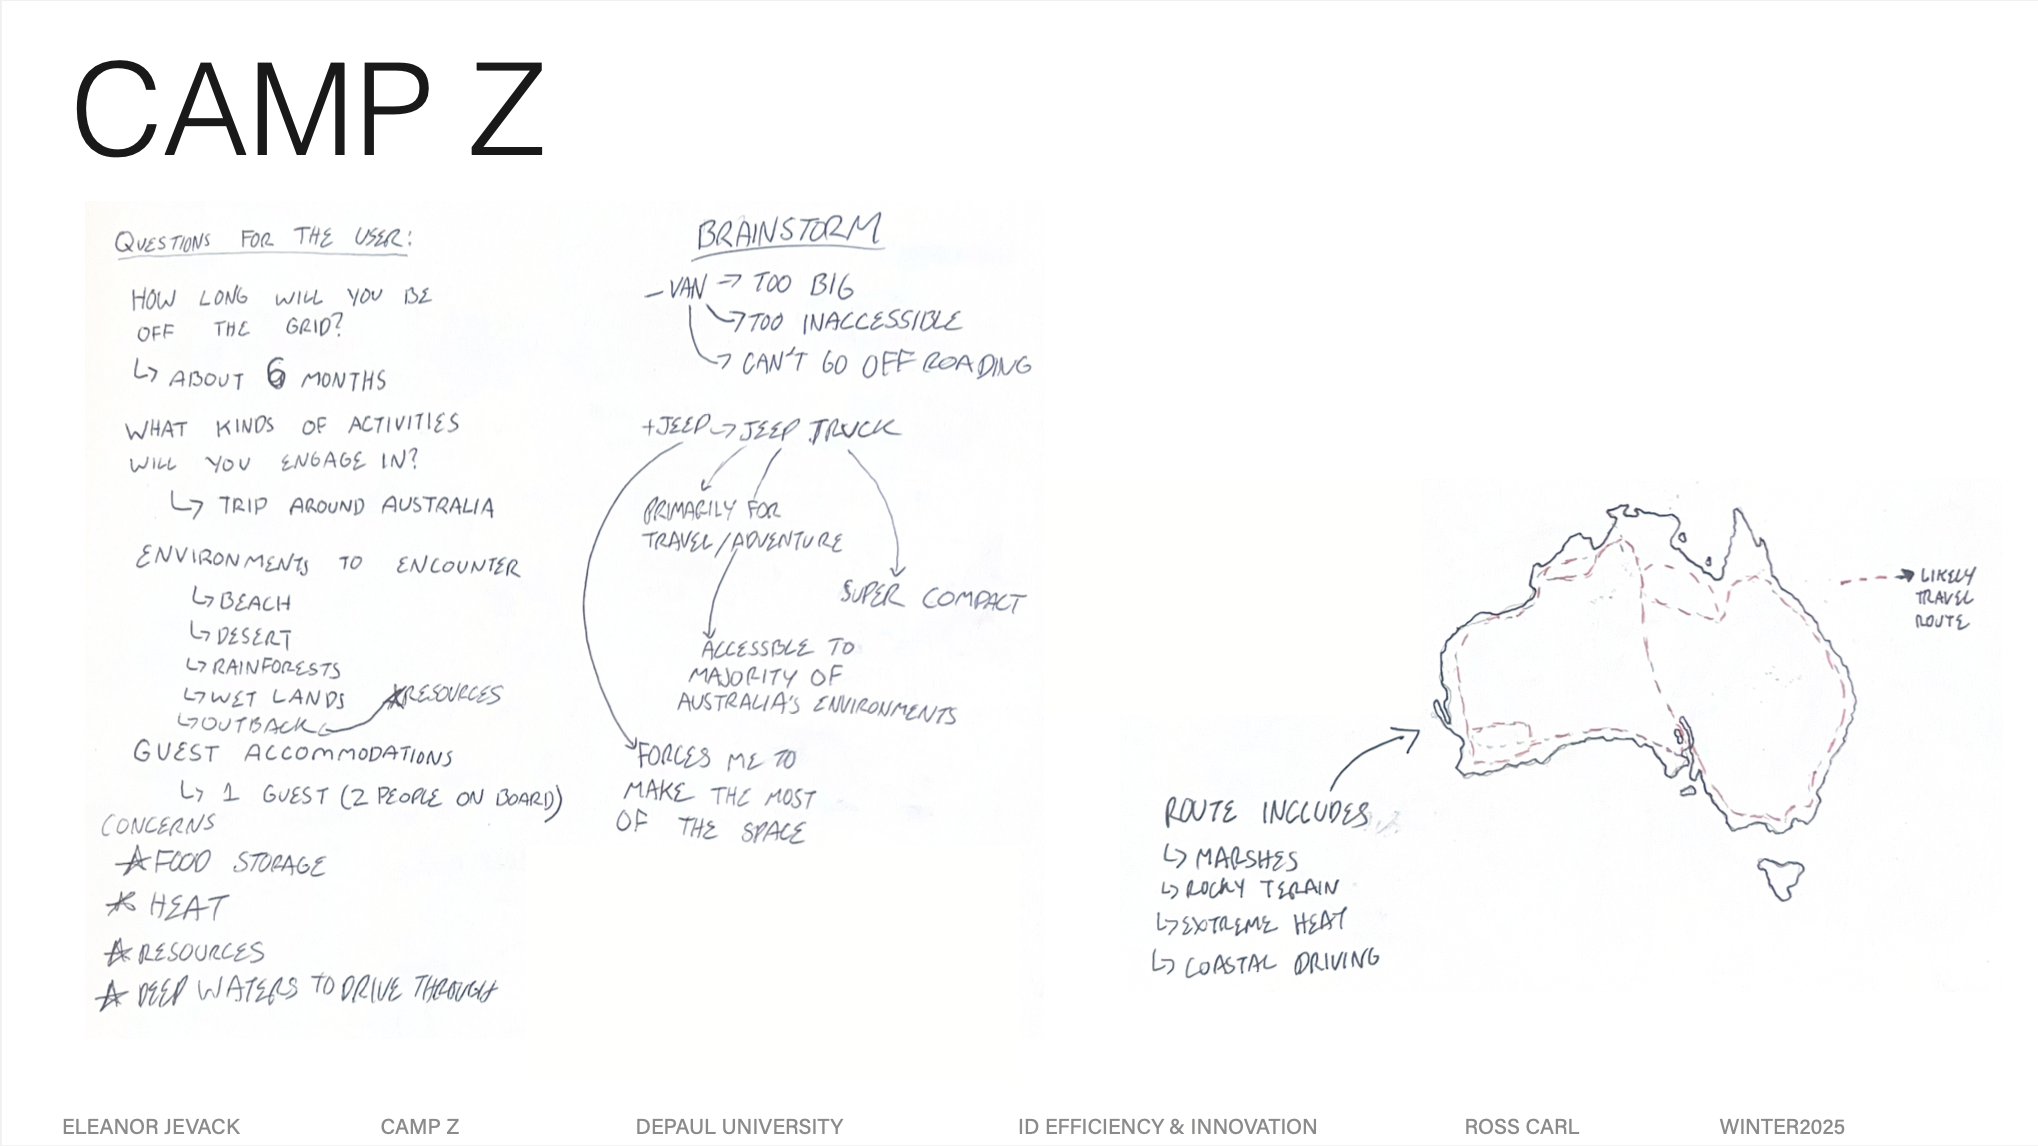 CAMP Z
QUESTIONS FOR THE USER:
HOW LONG WILL YOU BE
OFF THE GRID?
ABOUT 6 MONTHS
WHAT KINDS OF ACTIVITIES
WILL YOU ENGAGE IN?
TRIP AROUND AUSTRALIA
ENVIRONMENTS TO ENCOUNTER
BEACH
DESERT
RAINFORESTS
WET LANDS
RESOURCES
OUTBACK
GUEST ACCOMMODATIONS
1 GUEST (2 PEOPLE ON BOARD)
CONCERNS
FOOD STORAGE
HEAT
RESOURCES
DEEP WATERS TO DRIVE THROUGH
BRAINSTORM
- VAN → TOO BIG
TOO INACCESSIBLE
CAN'T GO OFF ROADING
+ JEEP → JEEP TRUCK
PRIMARILY FOR
TRAVEL/ADVENTURE
SUPER COMPACT
ACCESSBLE TO
MAJORITY OF
AUSTRALIA'S ENVIRONMENTS
FORCES ME TO
MAKE THE MOST
OF THE SPACE
LIKELY
TRAVEL
ROUTE
ROUTE INCLUDES
MARSHES
ROCKY TERAIN
EXTREME HEAT
COASTAL DRIVING
ELEANOR JEVACK CAMP Z DEPAUL UNIVERSITY ID EFFICIENCY & INNOVATION ROSS CARL WINTER2025